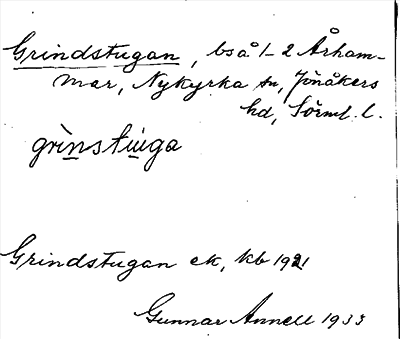 Grindstugan, bså 1-2 Årham-
mar, Nykyrka sn, Jönåkers
hd, Sörml. l.
grìnstuga
Grindstugan ek, kb 1921
Gunnar Annell 1933